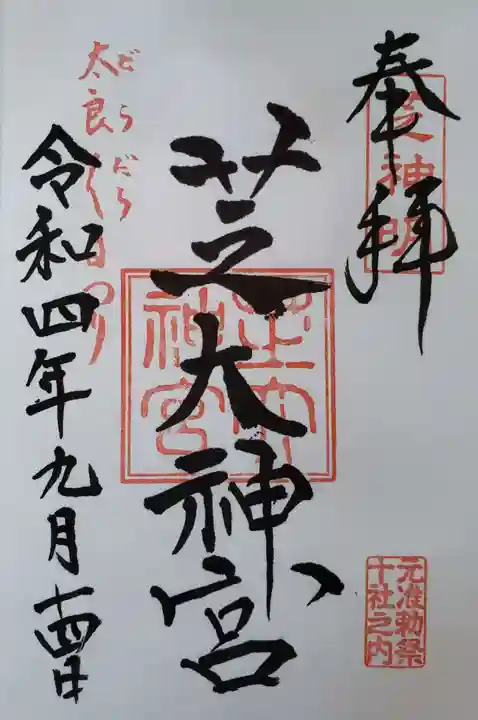 奉拝
芝神明
芝大神宮
芝大神宮
元准勅祭
十社之内
だらだら
太良
令和四年九月十四日